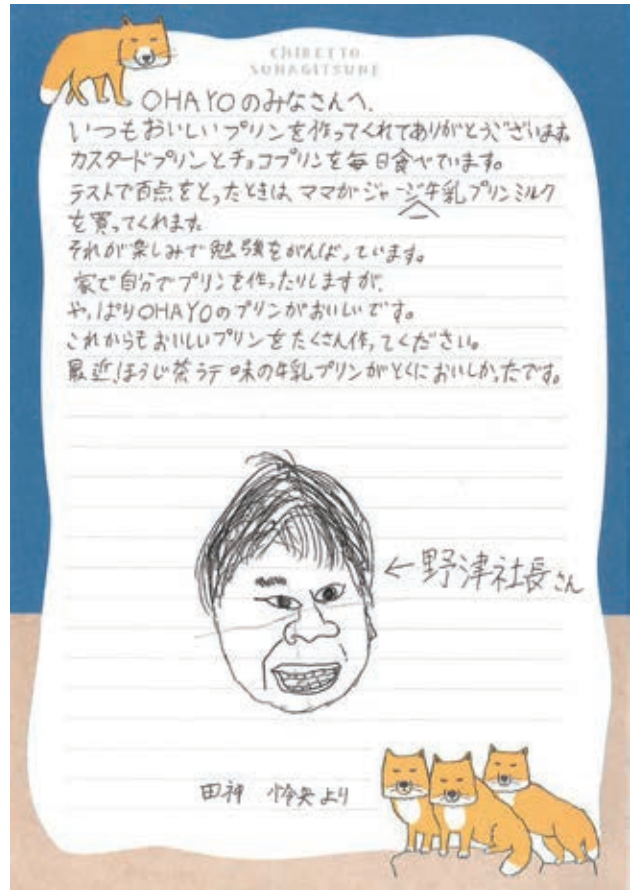 CHIBETTO
SUNAGITSUNE
OHAYOのみなさんへ、
いつもおいしいプリンを作ってくれてありがとうございます。
カスタードプリンとチョコプリンを毎日食べています。
テストで百点をとったときは、ママがジャージー牛乳プリンミルク
を買ってくれます。
それが楽しみで勉強をがんばっています。
家で自分でプリンを作ったりしますが、
やっぱりOHAYOのプリンがおいしいです。
これからもおいしいプリンをたくさん作ってください。
最近、ほうじ茶ラテ味の牛乳プリンがとくにおいしかったです。
←野津社長さん
田神 怜央より